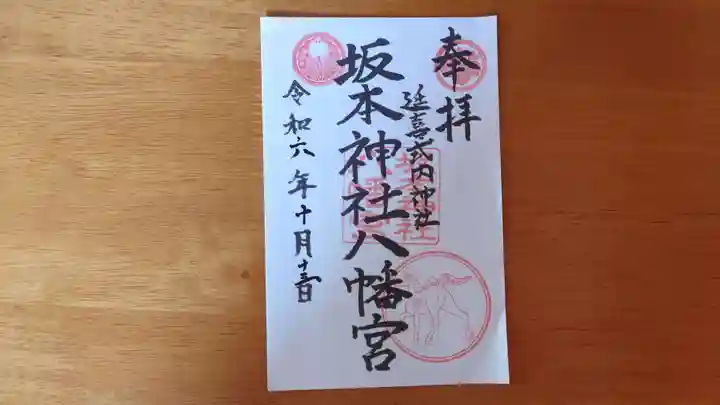 奉拝
延喜式内神社
坂本神社八幡宮
令和六年十月十三日